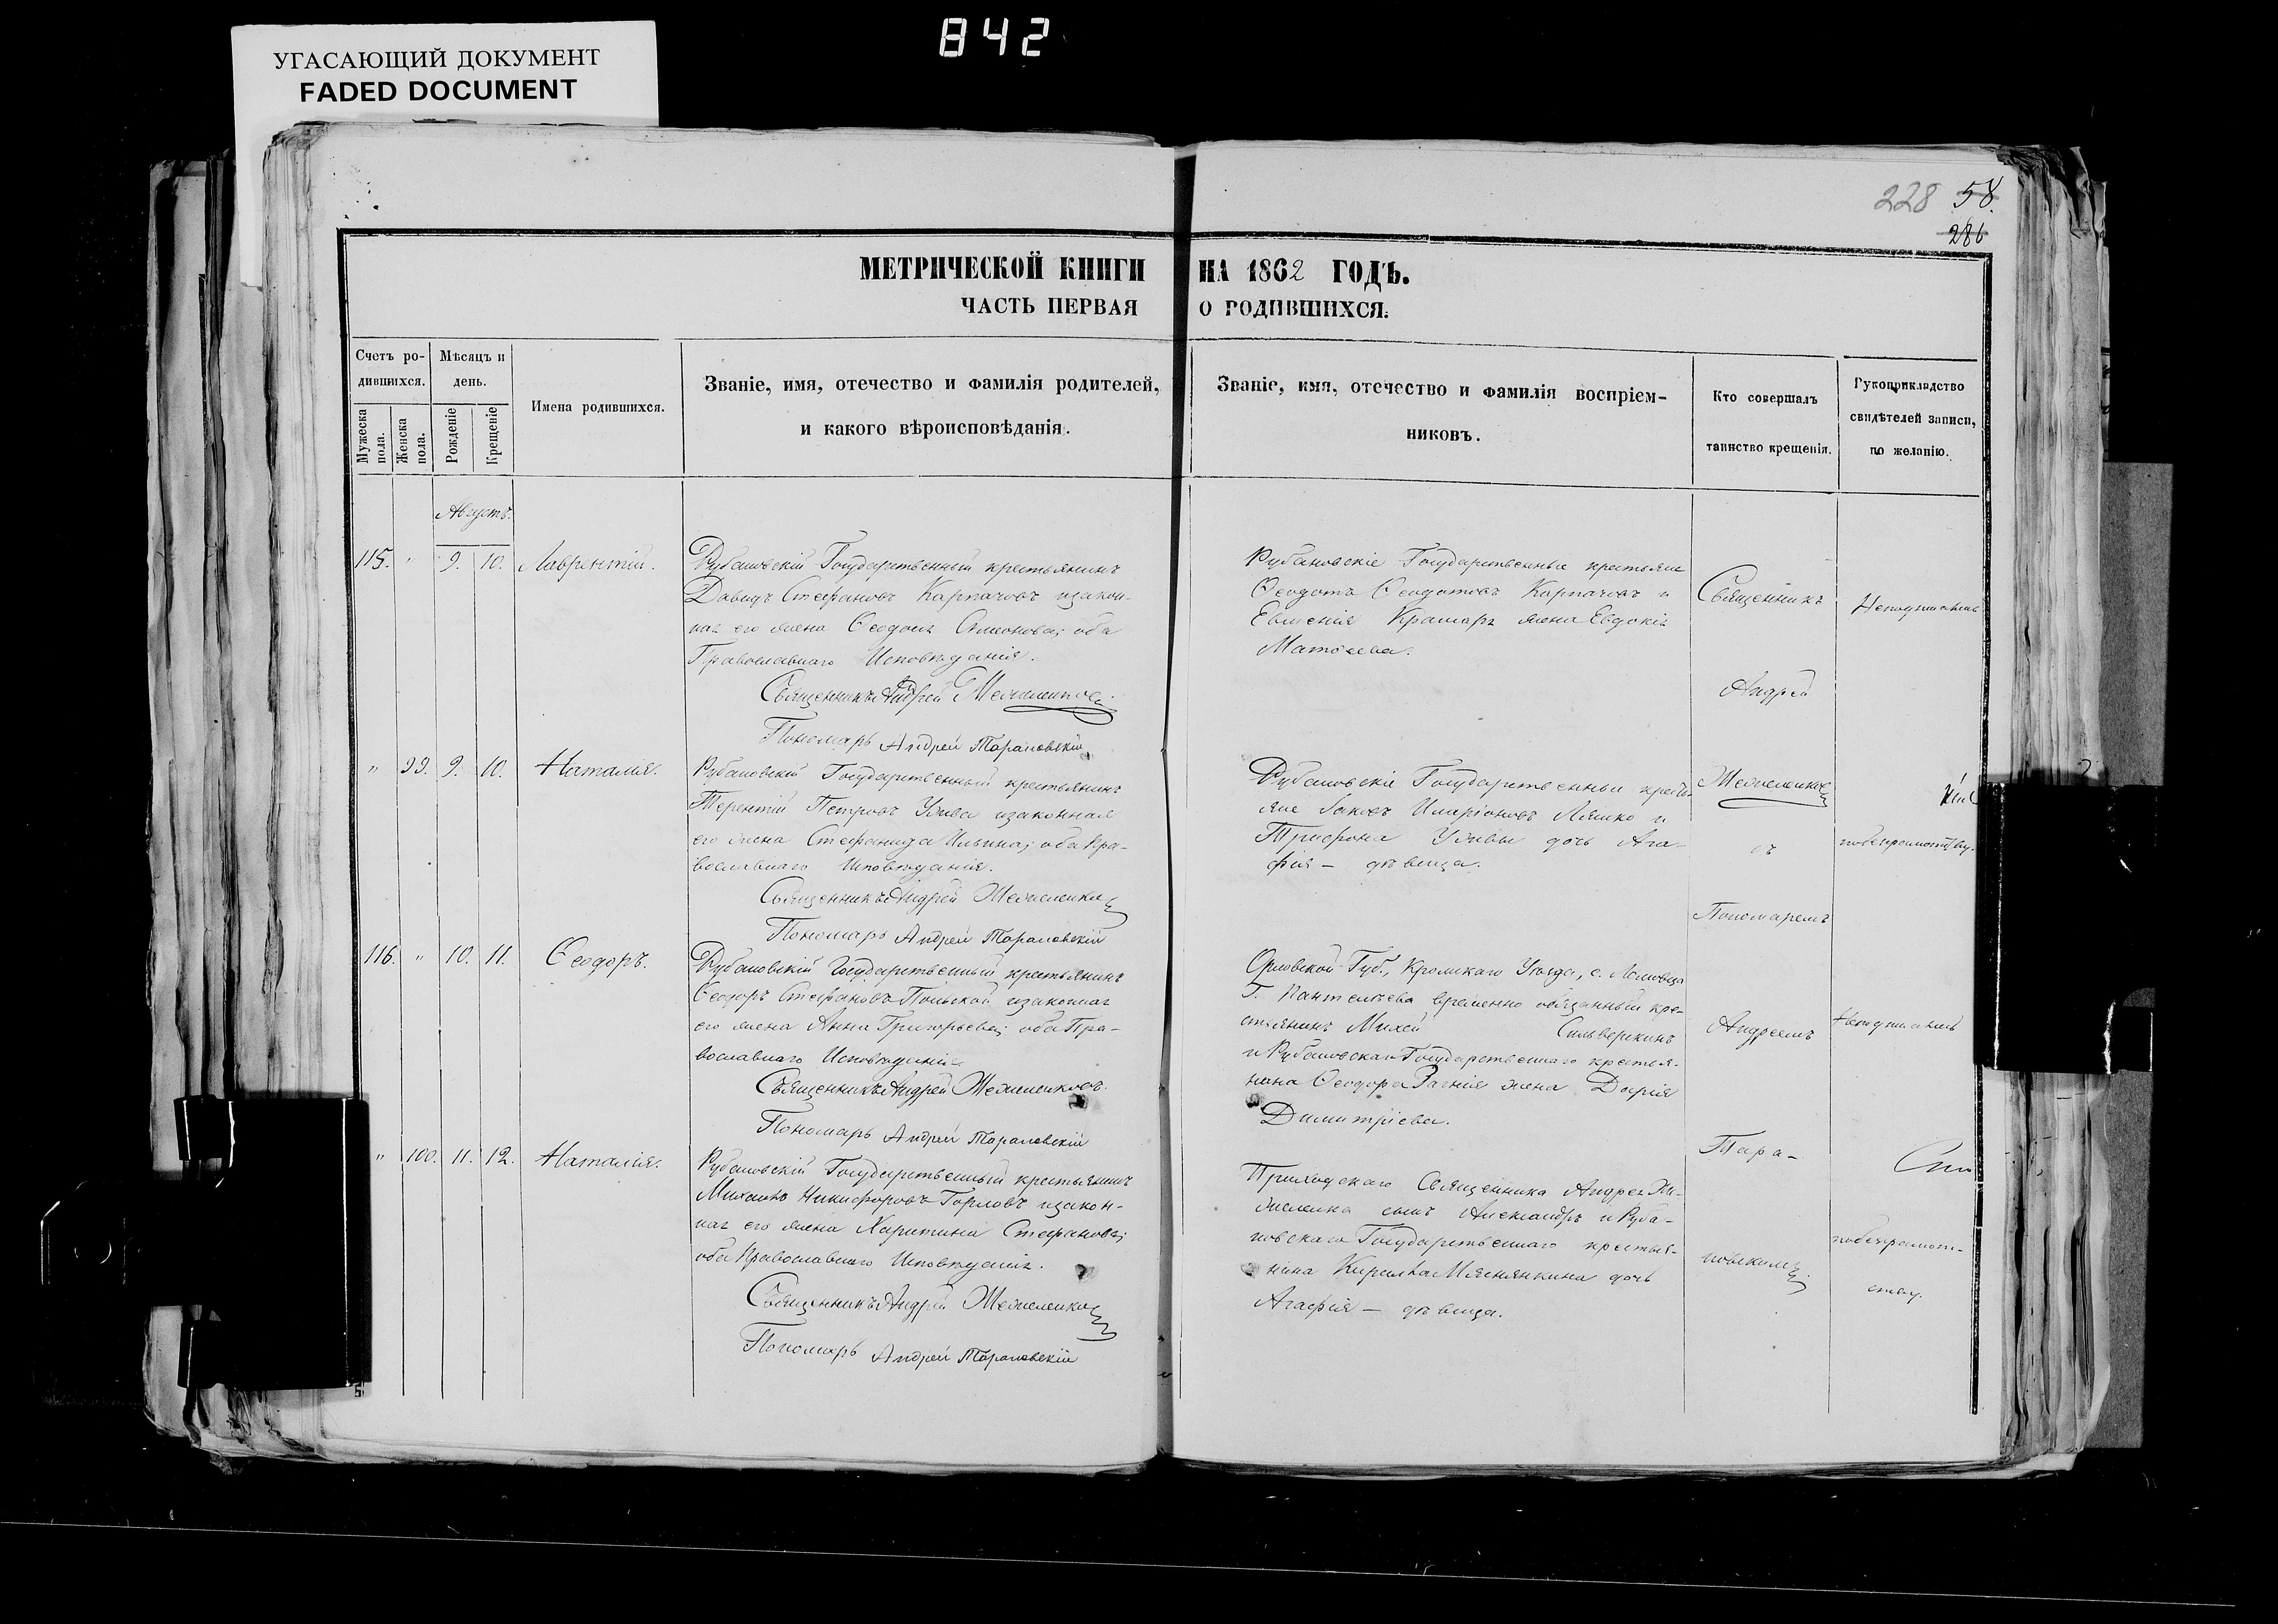 842
УГАСАЮЩИЙ ДОКУМЕНТ
FADED DOCUMENT
228 58.
286
МЕТРИЧЕСКОЙ КНИГИ НА 1862 ГОДЪ.
ЧАСТЬ ПЕРВАЯ О РОДИВШИХСЯ.
Счетъ ро-
дившихся.
Мужеска пола.
Женска пола.
Мѣсяцъ и
день.
Рожденіе
Крещеніе
Имена родившихся.
Званіе, имя, отечество и фамилія родителей,
и какого вѣроисповѣданія.
Званіе, имя, отечество и фамилія воспріем-
никовъ.
Кто совершалъ
таинство крещенія.
Рукоприкладство
свидѣтелей записи,
по желанію.
Августъ.
115. " 9. 10. Лаврентій.
Рубановскій Государственный крестьянинъ
Давидъ Стефановъ Карпачовъ и закон-
ная его жена Ѳеодосія Симеонова; оба
Православнаго Исповѣданія.
Священникъ Андрей
Пономарь Андрей Тарановскій
Рубановскіе Государственные крестьяне
Ѳеодотъ Ѳеодотовъ Карпачовъ и
Евменія Крамаръ жена Евдокія
Матѳеева.
" 99. 9. 10. Наталія.
Рубановскій Государственный крестьянинъ
Терентій Петровъ и законная
его жена Стефанида Ильина; оба Пра-
вославнаго Исповѣданія.
Священникъ Андрей
Пономарь Андрей Тарановскій
Рубановскіе Государственные крестья-
яне Іаковъ Иларіоновъ Ляшко и
Трифона дочь Ага-
фія – дѣвица.
116. " 10. 11. Ѳеодоръ.
Рубановскій Государственный крестьянинъ
Ѳеодоръ Стефановъ Польской и законная
его жена Анна Григорьева; оба Пра-
вославнаго Исповѣданія.
Священникъ Андрей
Пономарь Андрей Тарановскій
Орловской Губ., Кромскаго Уѣзда, с.
Г. Пантелѣева временно обязанный кре-
стьянинъ Михей Сильверкинъ
и Рубановскаго Государственнаго крестья-
нина Ѳеодора жена Дарія
Димитріева.
" 100. 11. 12. Наталія.
Рубановскій Государственный крестьянинъ
Михаилъ Никифоровъ Горловъ и закон-
ная его жена Харитина Стефанова;
оба Православнаго Исповѣданія.
Священникъ Андрей
Пономарь Андрей Тарановскій
Приходскаго Священника Андрея
сынъ Александръ и Руба-
новскаго Государственнаго крестья-
нина Кирилла дочь
Агафія – дѣвица.
Священникъ
Андрей
съ
Пономаремъ
Андреемъ
Тара-
новскимъ.
Неподписались
по безграмотству.
Неподписались
по безграмот-
ству.